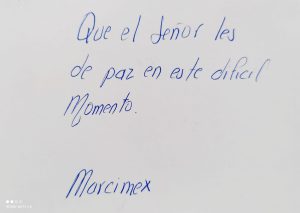 Que el Señor les
de paz en este dificil
Momento.
Marcimex